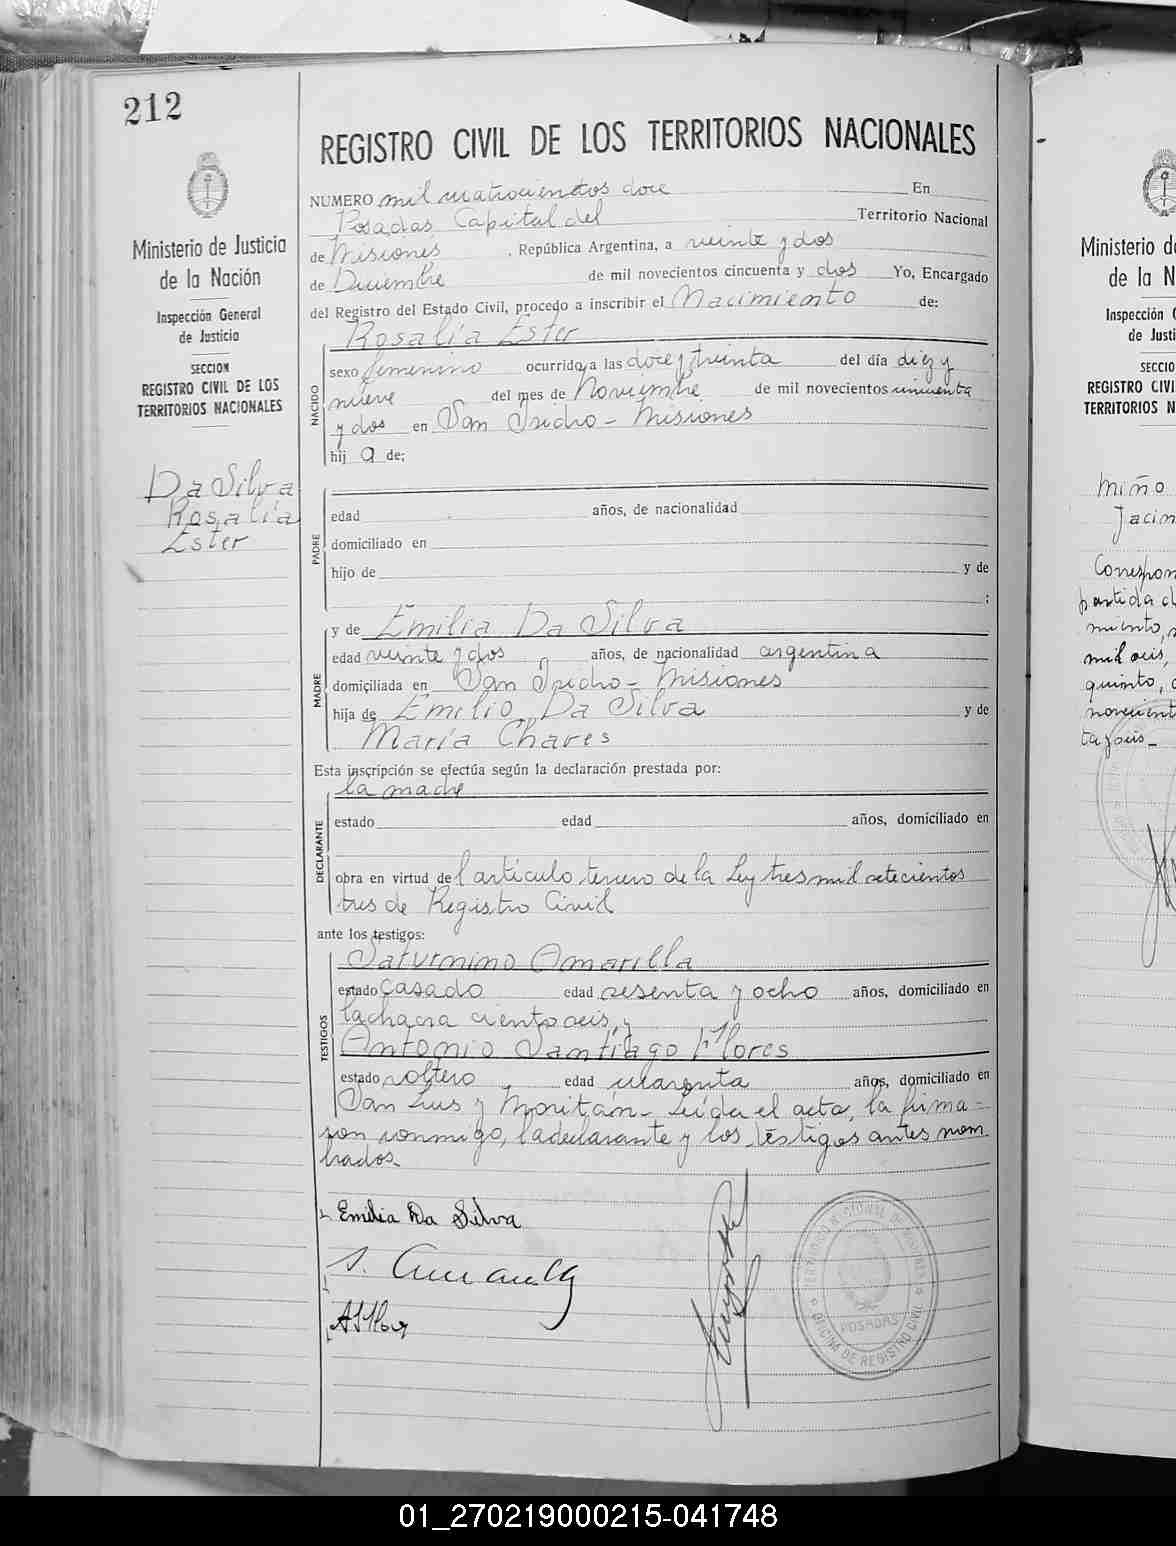 212
Ministerio de Justicia
de la Nación
Inspección General
de Justicia
SECCION
REGISTRO CIVIL DE LOS
TERRITORIOS NACIONALES
Da Silva
Rosalía
Ester
REGISTRO CIVIL DE LOS TERRITORIOS NACIONALES
NUMERO mil cuatrocientos doce En
Posadas, Capital del Territorio Nacional
de Misiones, República Argentina, a veinte y dos
de Diciembre de mil novecientos cincuenta y dos Yo, Encargado
del Registro del Estado Civil, procedo a inscribir el Nacimiento de:
Rosalía Ester
NACIDO
sexo femenino ocurrido a las doce y treinta del día diez y
nueve del mes de Noviembre de mil novecientos cincuenta
y dos en San Isidro - Misiones
hij a de:
PADRE
edad años, de nacionalidad
domiciliado en
hijo de y de
;
MADRE
y de Emilia Da Silva
edad veinte y dos años, de nacionalidad argentina
domiciliada en San Isidro - Misiones
hija de Emilio Da Silva y de
María Chaves
Esta inscripción se efectúa según la declaración prestada por:
la madre
DECLARANTE
estado edad años, domiciliado en
obra en virtud del artículo tercero de la Ley tres mil setecientos
tres de Registro Civil
ante los testigos:
TESTIGOS
Saturnino Amarilla
estado casado edad sesenta y ocho años, domiciliado en
la chacra ciento seis, y
Antonio Santiago Flores
estado soltero edad cuarenta años, domiciliado en
San Luis y Moritán - Leída el acta, la firma-
ron conmigo, la declarante y los testigos antes nom
brados.
Emilia Da Silva
S. Amarilla
TERRITORIO NACIONAL DE MISIONES
POSADAS
OFICINA DE REGISTRO CIVIL
Ministerio d
de la N
Inspección
de Justi
SECCIO
REGISTRO CIVI
TERRITORIOS N
Miño
Jacin
Correspon
partida d
miento,
mil seis,
quinto,
novecient
ta y seis -
01_270219000215-041748